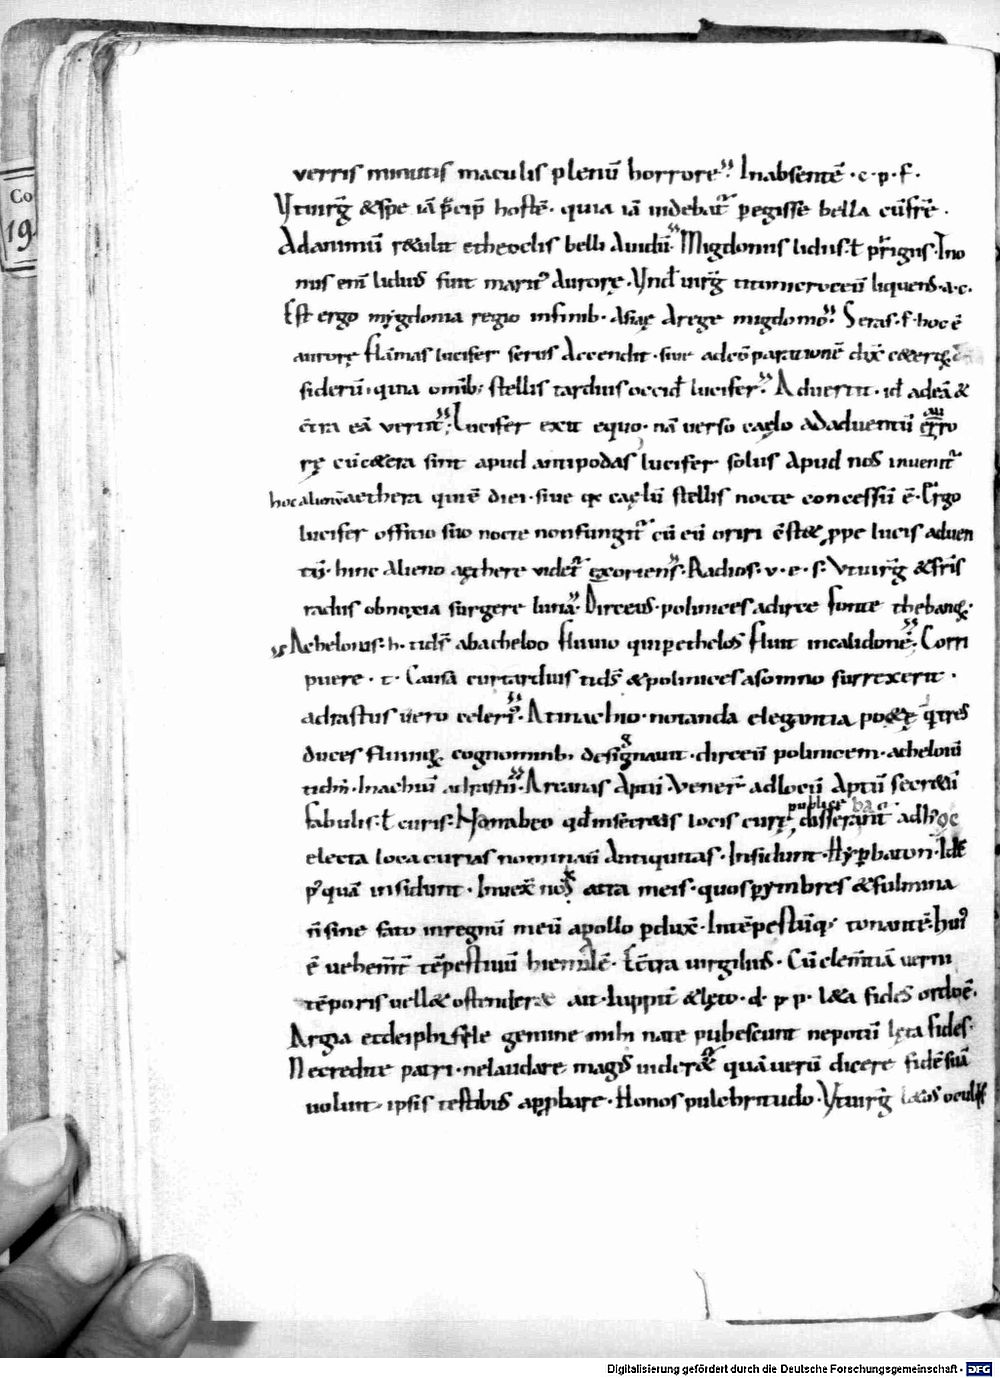 verris minutis maculis plenū horrore. Inabsentē · c · p · f ·
Vtuirg̃ &spe iā p̄cip̄ hostē · quia iā uidebat̃ pegisse bella cū frē ·
Adanimū r&ulit etheoclis belli auidū. Migdonius lidius · ł phrigius · Ino
nus eni lidius fuit marit᾿ aurorę · Vnđ uirg̃ titoni croceū liquens · a · c ·
Est ergo mygdonia regio infinib · asiae Arege migdono. Seras · f · hoc ē
aurorę flāmas lucifer serus Accendit · siue adcōparationē
siderū · quia omīb; stellis tardius occiđ lucifer. Aduertit · iđ adeā &
c̄tra eā uertit; Lucifer exit equo · nā uerso caelo adaduentū
rę cū c&era sint apud antipodas lucifer solus apud nos inuenit̃
hoc alienū aethera qui ē diei · siue q caelū stellis nocte concessū ē · Ergo
lucifer officio suo nocte nonfungit̃ cū eū oriri c̄st& ꝓpe lucis aduen
tū · hinc alieno aethere uidet̃ exoriens · Radios · v · e · s · Vtuirg̃ &fr̄is
radiis obnoxia surgere luna. Dirceus · polinices adirce fonte theban
Achelous · h · tids abacheloo fluuio quip etholos fluit incalidonē · Corri
puere · t · Causa curtardius tids &polinices asomno surrexerit ·
adrastus uero celeri. Atinachio · notanda elegantia po&ę q̄ tres
duces fluuiꝝ cognominib; designauit · dirceū polinicem · acheloiū
tidm̄ · Inachiū adrastū. Arcanas Aptū · Venerr̃ adlocū Aptū secr&ū
fabulis · ł curis · Nā mabeo qđ insecr&is locis curę publice disserant̃ adhoc
electa loca curias nominauit Antiquitas · Insidunt · Hyp̄baton · Id ē
p᾿quā insidunt · Inuex nos atta meis · quos p ymbres &fulmina
n̄ sine fato inregnū meū apollo pduxit · Intēpestiuūq; tonantē · hui᾿
ē uehem̄t tēpestiuū hiemalē · Ec̄tra uirgilius · Cū clem̄tiā uerni
tēporis uell& ostendere ait · Iuppit̃ &lęto · d · p p · l&a fides ordo ē ·
Argia etdeiphi file gemine mihi nate pubescunt nepotū lęta fides ·
Necredite patri · nelaudare magis uider& quā uerū dicere fidē suā
uolunt · ipsis testibus appbare · Honos pulchritudo · Vtuirg̃ l&os oculis
Digitalisierung gefördert durch die Deutsche Forschungsgemeinschaft · DFG